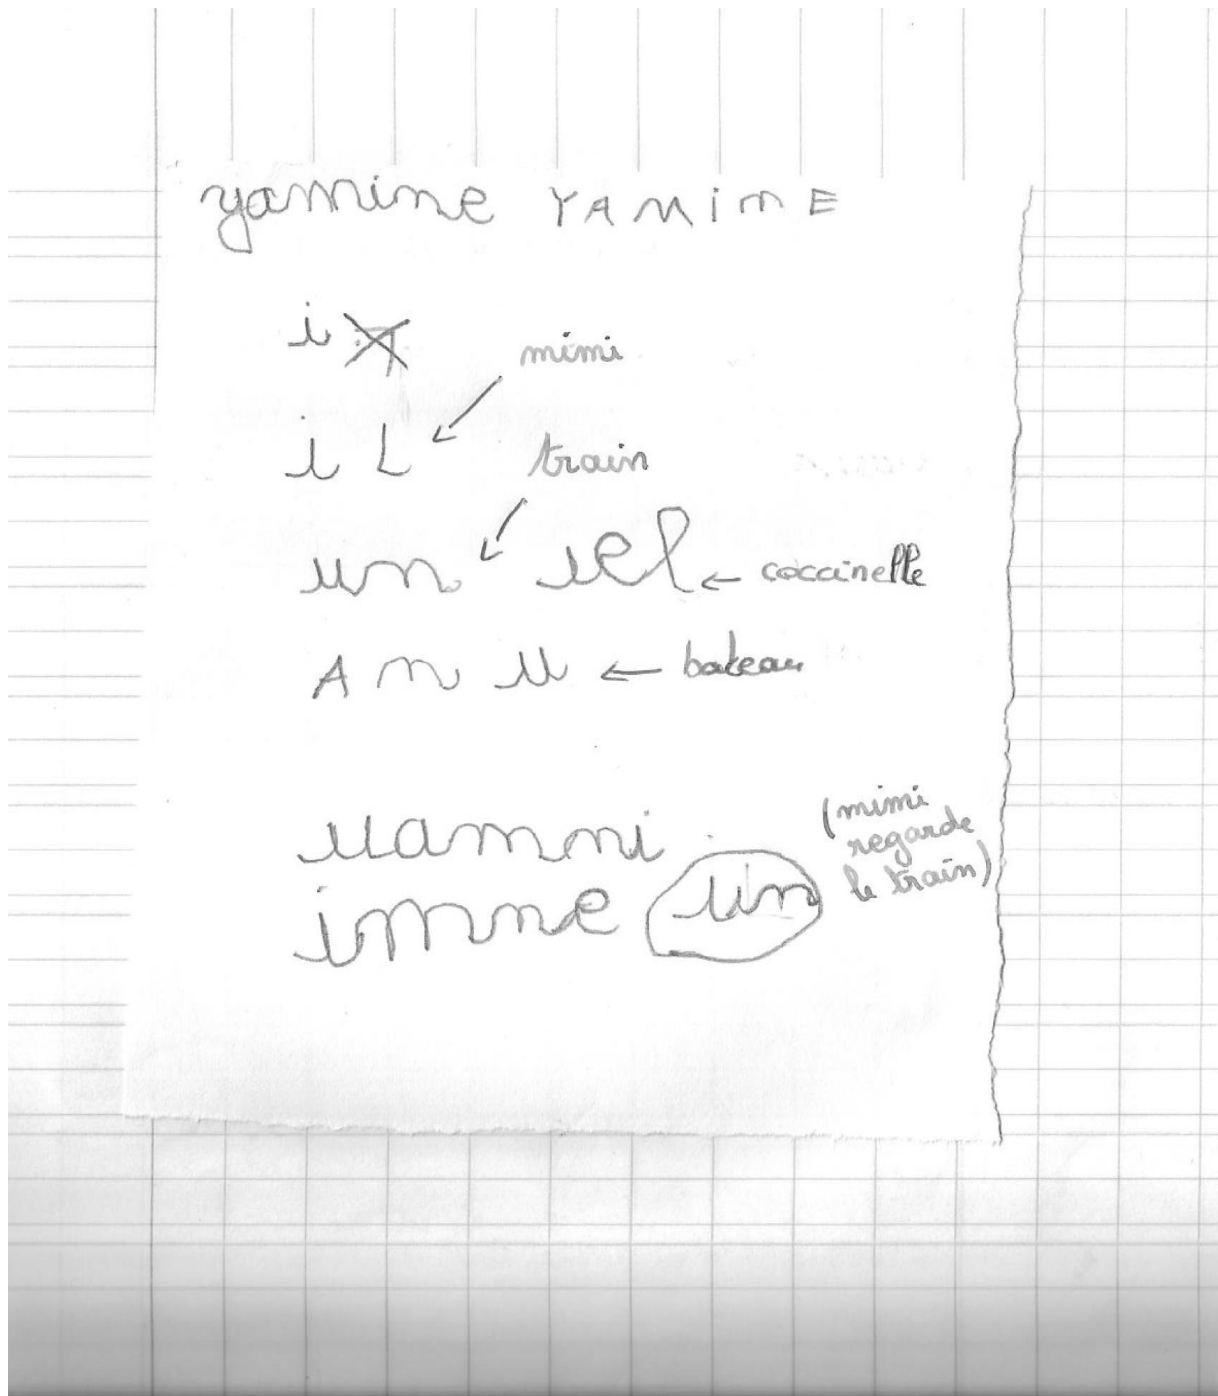 yamine YAMiME
i
mimi
i L
train
un iel
coccinelle
A n u
bateau
uamni
(mimi
regarde
le train)
imne un